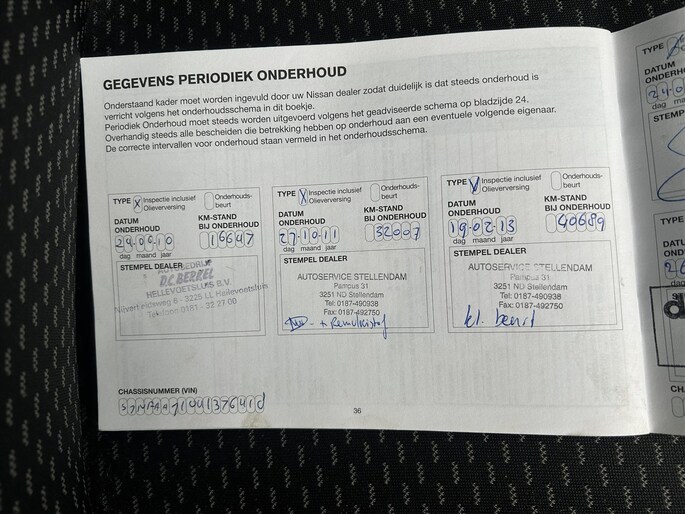 GEGEVENS PERIODIEK ONDERHOUD
Onderstaand kader moet worden ingevuld door uw Nissan dealer zodat duidelijk is dat steeds onderhoud is
verricht volgens het onderhoudsschema in dit boekje.
Periodiek Onderhoud moet steeds worden uitgevoerd volgens het geadviseerde schema op bladzijde 24.
Overhandig steeds alle bescheiden die betrekking hebben op onderhoud aan een eventuele volgende eigenaar.
De correcte intervallen voor onderhoud staan vermeld in het onderhoudsschema.
TYPE X Inspectie inclusief Olieverversing Onderhouds-beurt
DATUM ONDERHOUD KM-STAND BIJ ONDERHOUD
24-06-10 16647
dag maand jaar
STEMPEL DEALER
D.C. BERREL
HELLEVOETSLUIS B.V.
Nijverheidsweg 6 - 3225 LL Hellevoetsluis
Telefoon 0181 - 32 27 00
TYPE X Inspectie inclusief Olieverversing Onderhouds-beurt
DATUM ONDERHOUD KM-STAND BIJ ONDERHOUD
27-10-11 32007
dag maand jaar
STEMPEL DEALER
AUTOSERVICE STELLENDAM
Pampus 31
3251 ND Stellendam
Tel: 0187-490938
Fax: 0187-492750
+ Remvloeistof
TYPE V Inspectie inclusief Olieverversing Onderhouds-beurt
DATUM ONDERHOUD KM-STAND BIJ ONDERHOUD
19-02-13 40689
dag maand jaar
STEMPEL DEALER
AUTOSERVICE STELLENDAM
Pampus 31
3251 ND Stellendam
Tel: 0187-490938
Fax: 0187-492750
kl. beurt
CHASSISNUMMER (VIN)
36
TYPE
DATUM
ONDERHO
dag maa
STEMP
TYPE
DATU
OND
dag